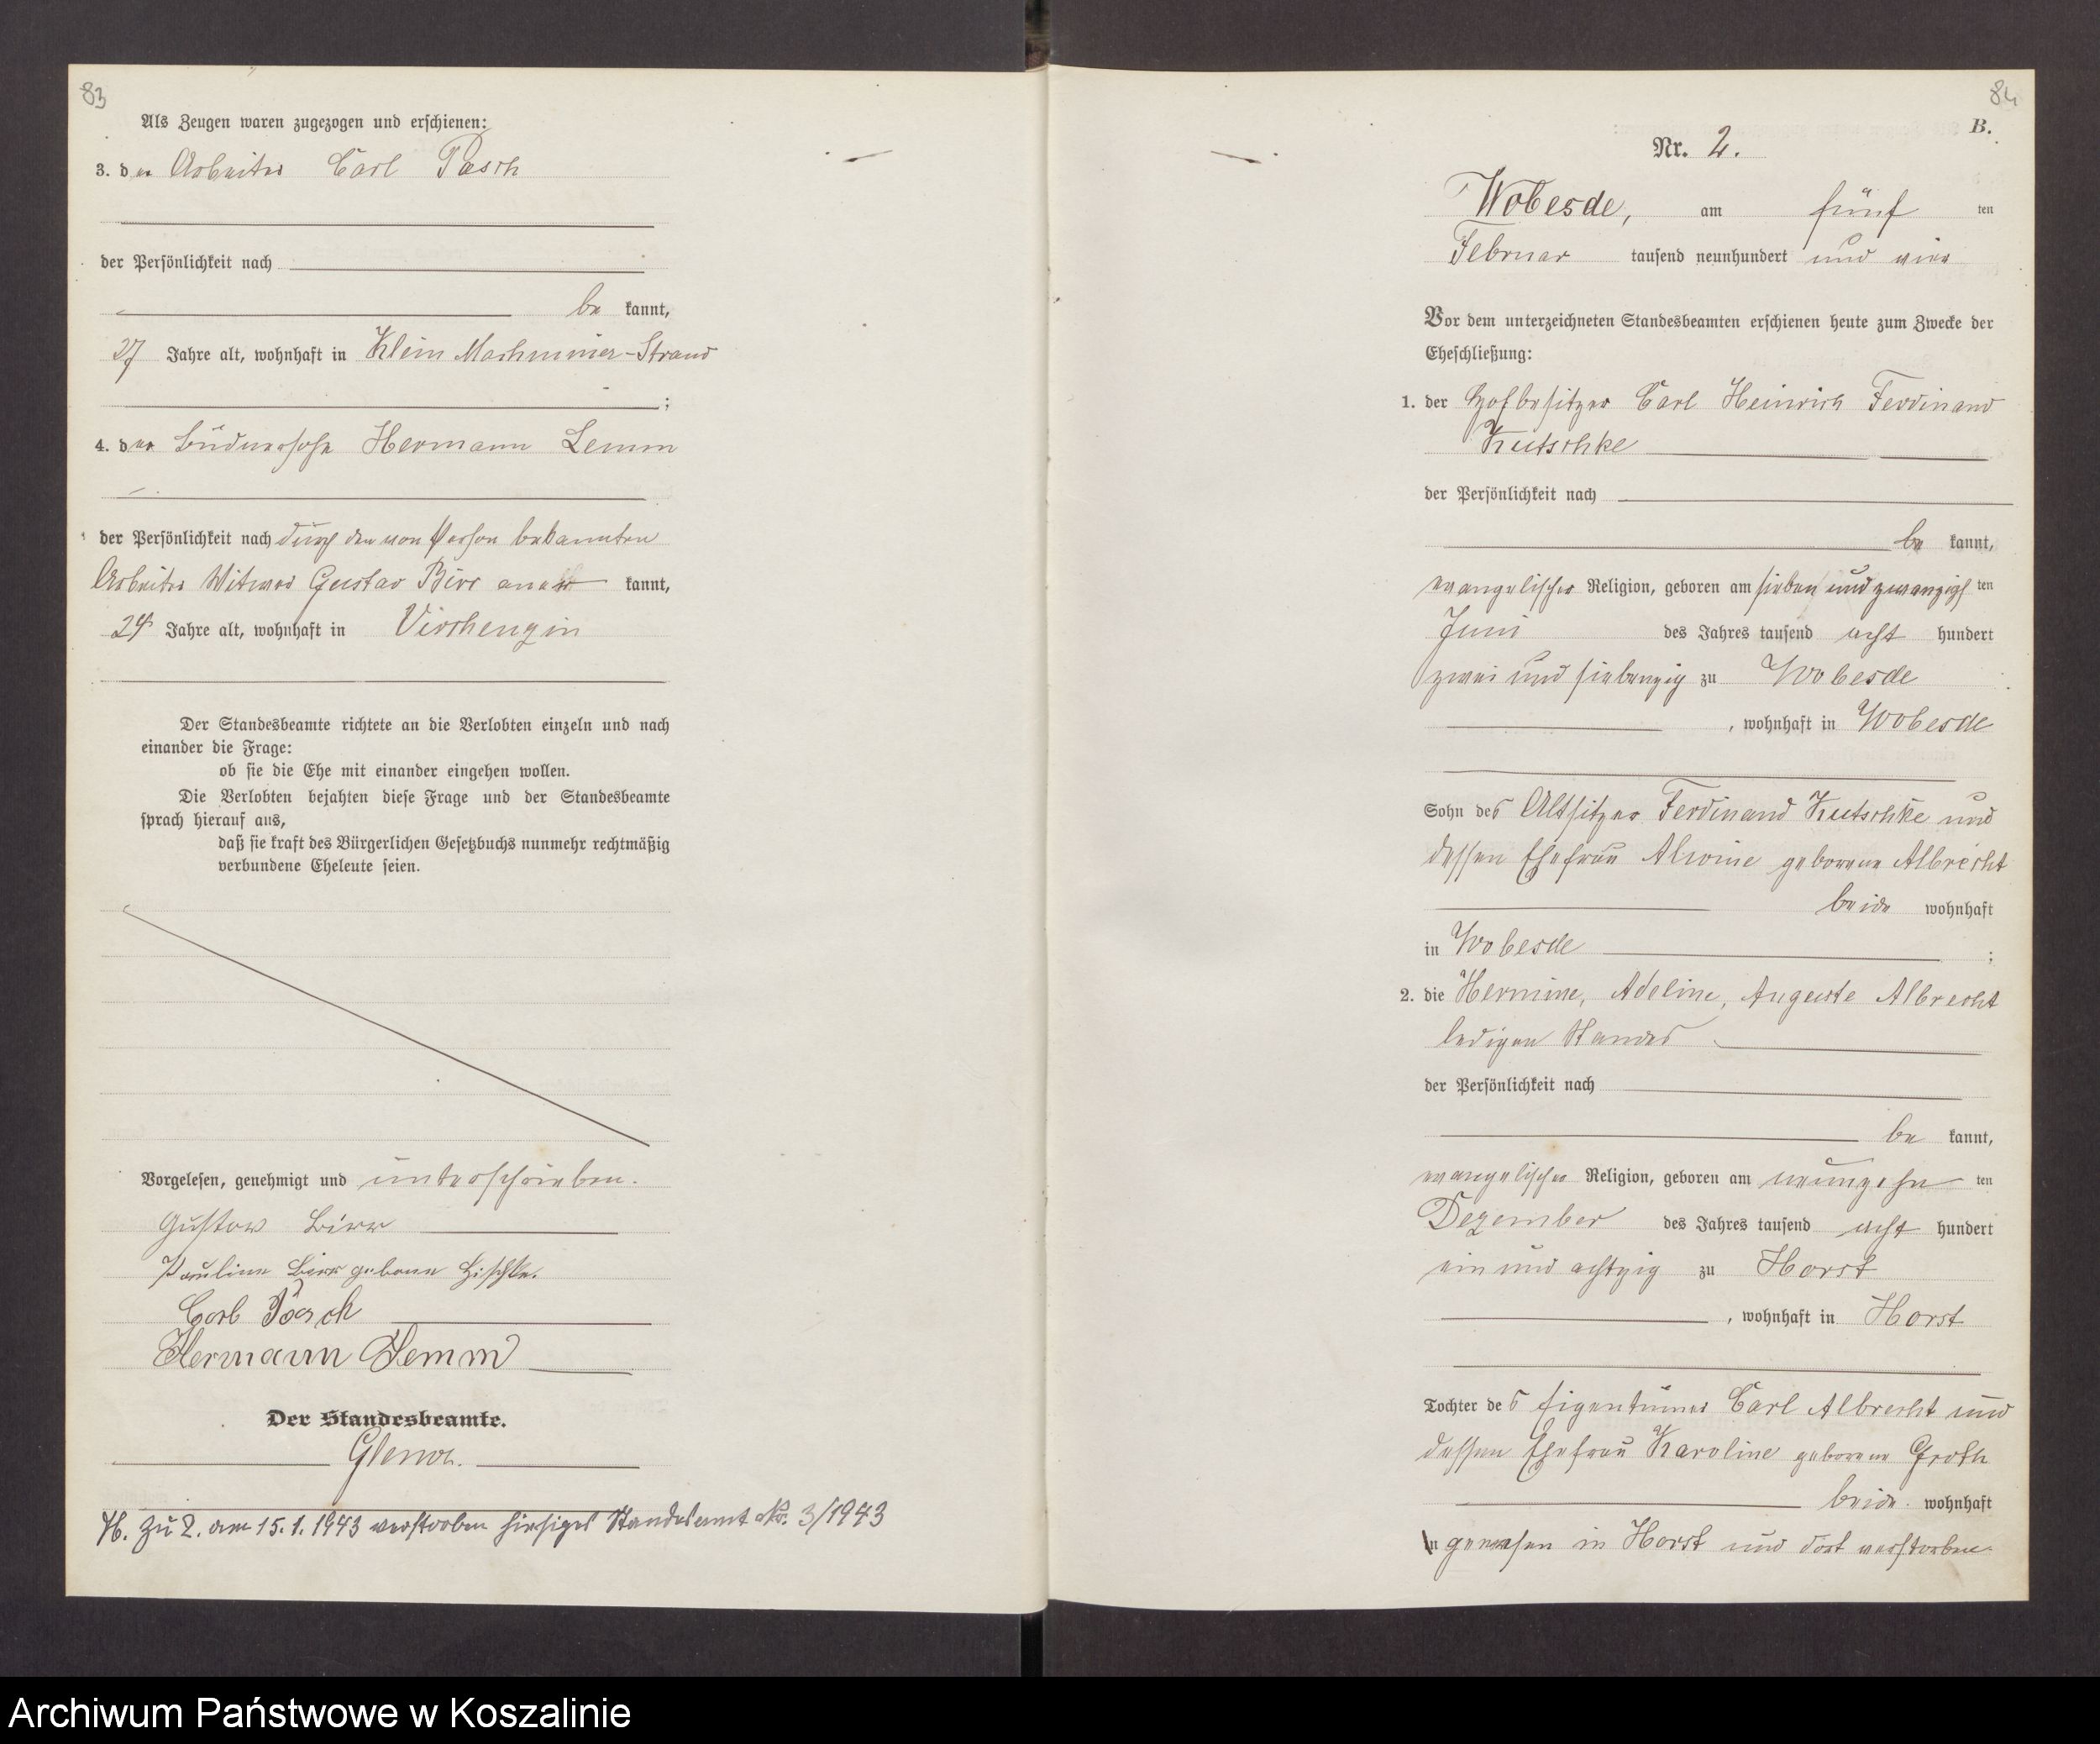 83
Als Zeugen waren zugezogen und erschienen:
3. der Arbeiter Carl Pasch
der Persönlichkeit nach
be kannt,
27 Jahre alt, wohnhaft in Klein Machminer-Strand
;
4. der Büdnersohn Hermann Lemm
der Persönlichkeit nach durch den von Person bekannten
Arbeiter Witwer Gustav Birr aner kannt,
24 Jahre alt, wohnhaft in Virchenzin
Der Standesbeamte richtete an die Verlobten einzeln und nach
einander die Frage:
ob sie die Ehe mit einander eingehen wollen.
Die Verlobten bejahten diese Frage und der Standesbeamte
sprach hierauf aus,
daß sie kraft des Bürgerlichen Gesetzbuchs nunmehr rechtmäßig
verbundene Eheleute seien.
Vorgelesen, genehmigt und unterschrieben.
Gustav Birr
Pauline Birr geborne
Carl Pasch
Hermann Lemm
Der Standesbeamte.
H. zu 2. am 15.1.1943 verstorben hiesiges Standesamt No. 3/1943
84
B.
Nr. 2.
Wobesde, am fünf ten
Februar tausend neunhundert und vier
Vor dem unterzeichneten Standesbeamten erschienen heute zum Zwecke der
Eheschließung:
1. der Hofbesitzer Carl Heinrich Ferdinand
Kutschke
der Persönlichkeit nach
be kannt,
evangelischer Religion, geboren am sieben und zwanzigs ten
Juni des Jahres tausend acht hundert
zwei und siebenzig zu Wobesde
, wohnhaft in Wobesde
Sohn des Altsitzer Ferdinand Kutschke und
dessen Ehefrau Alwine geborene Albrecht
beide wohnhaft
in Wobesde ;
2. die Hermine, Adeline, Auguste Albrecht
ledigen Standes
der Persönlichkeit nach
be kannt,
evangelischer Religion, geboren am neunzehn ten
Dezember des Jahres tausend acht hundert
ein und achtzig zu Horst
, wohnhaft in Horst
Tochter des Eigentümer Carl Albrecht und
dessen Ehefrau Karoline geborene Groth
beide wohnhaft
in gewesen in Horst und dort verstorben
Archiwum Państwowe w Koszalinie